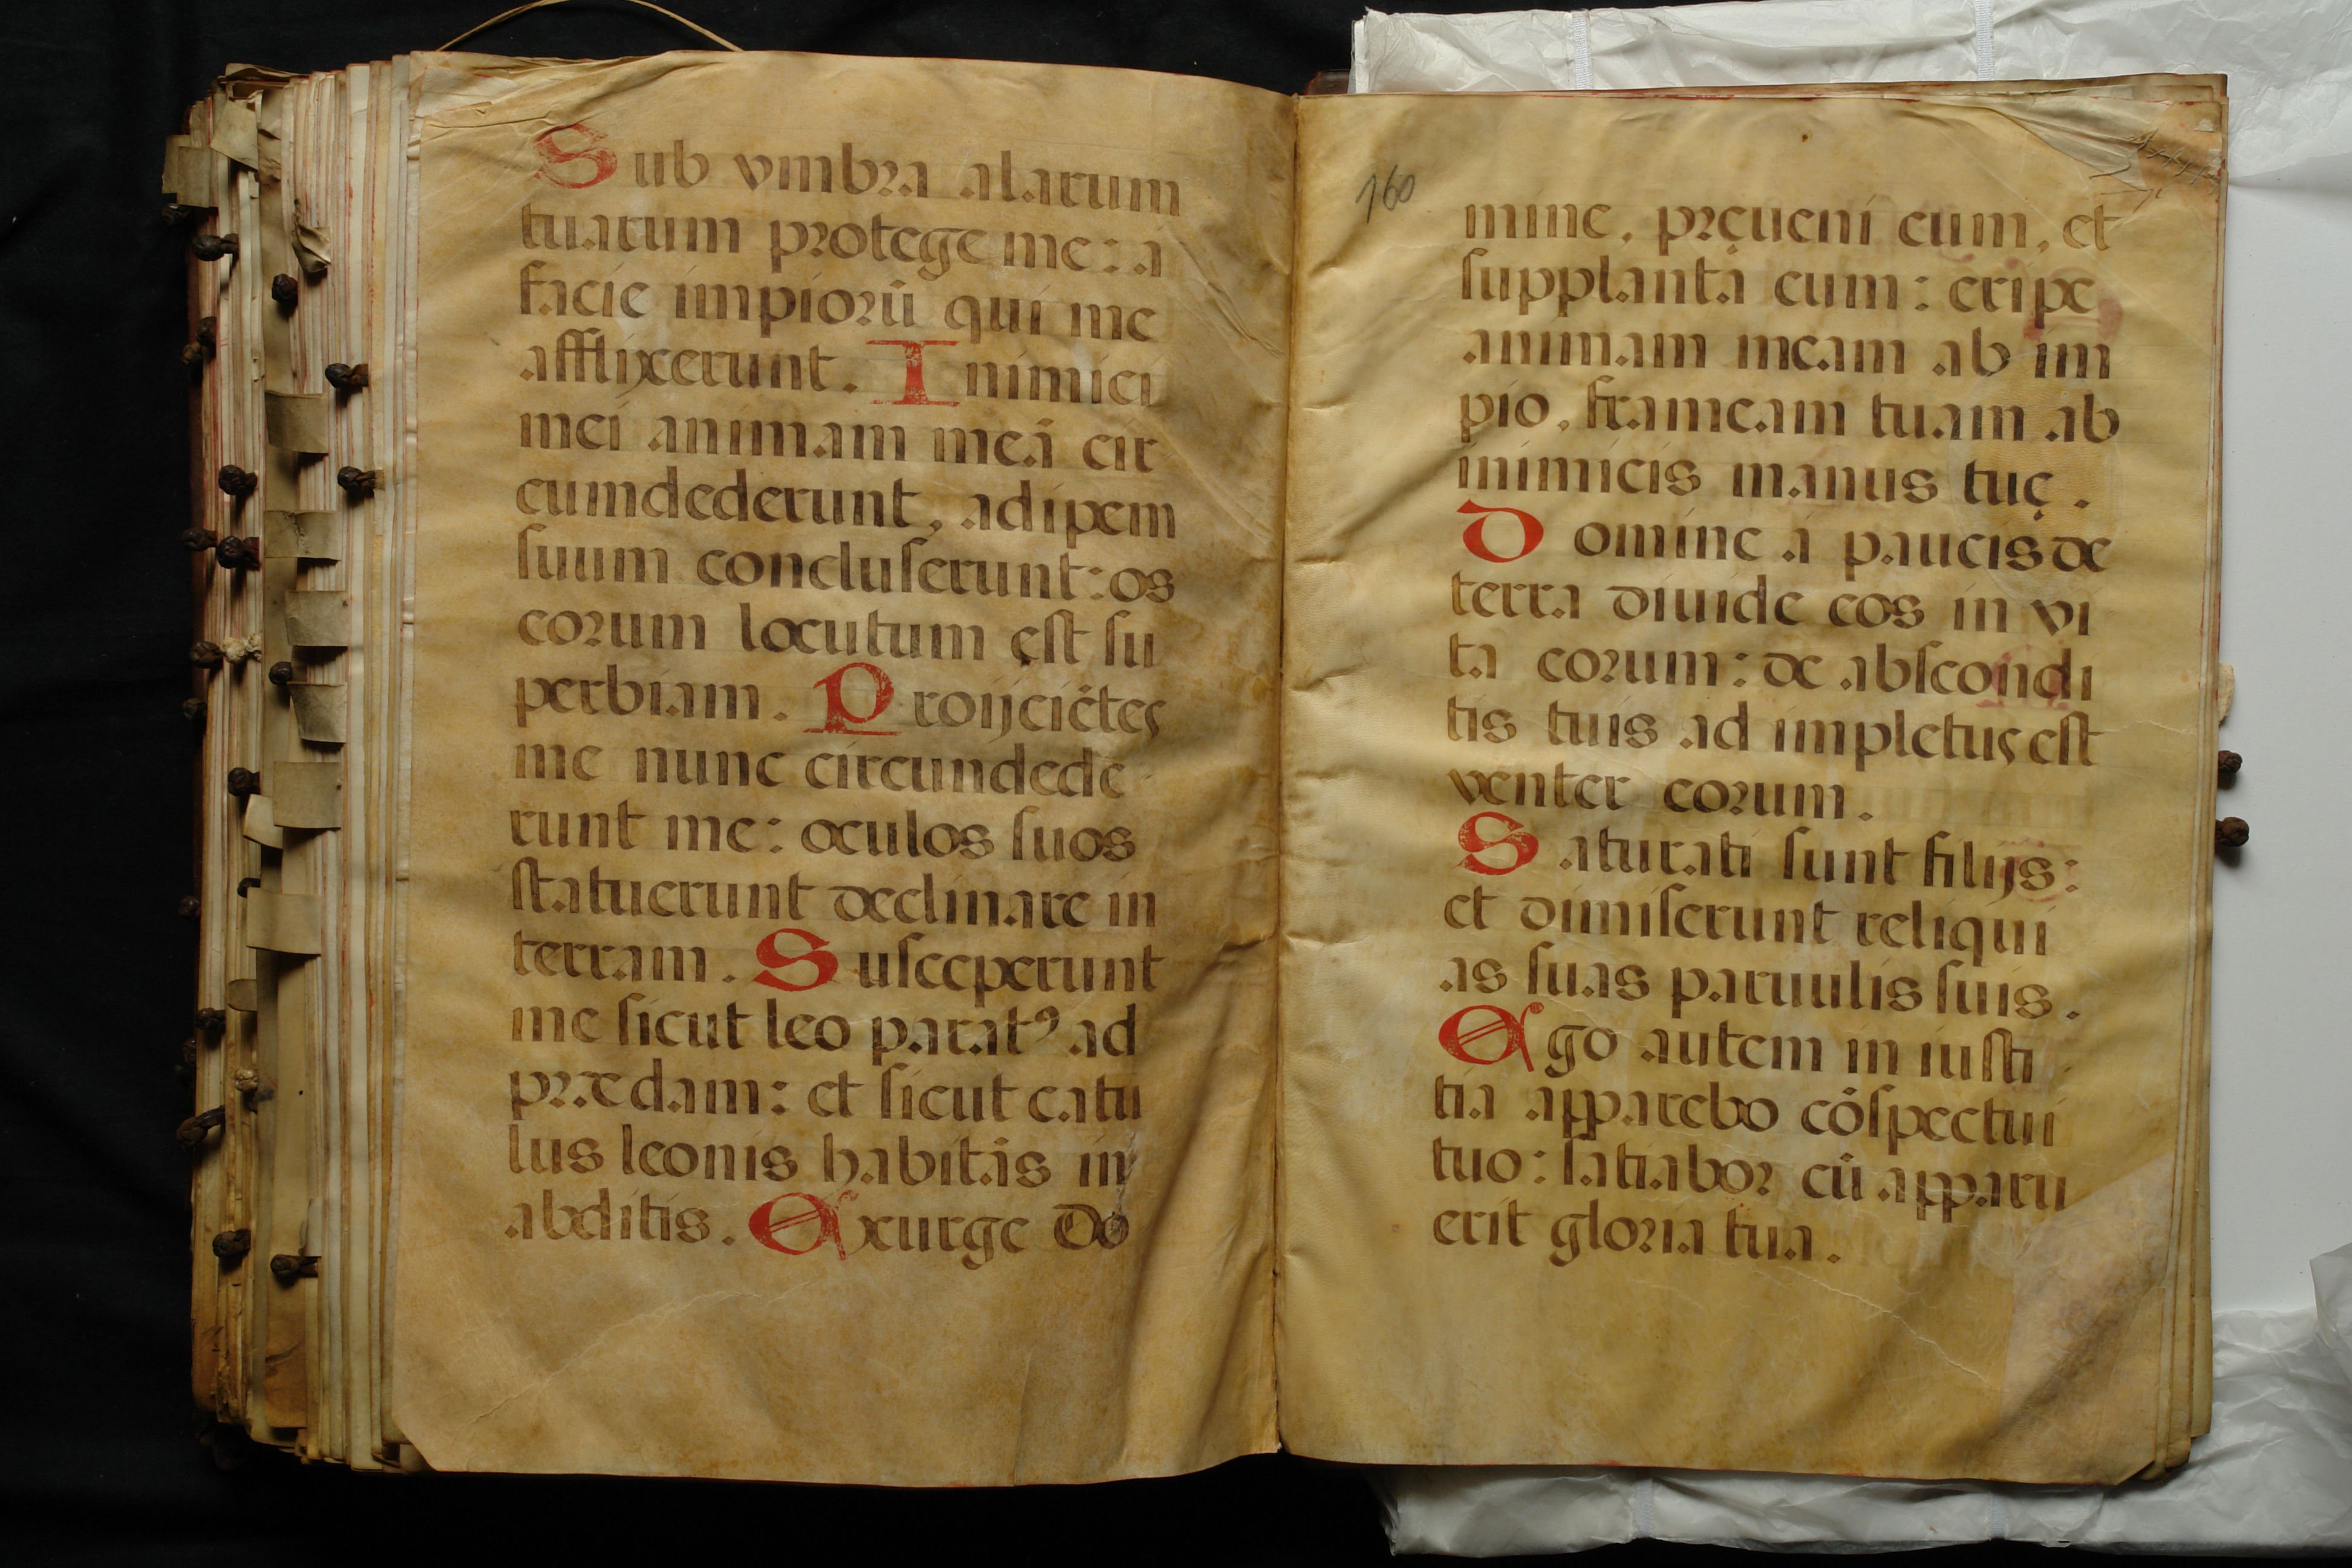 Sub vmbra alarum
tuarum protege me: a
facie impiorū qui me
afflixerunt. Inimici
mei animam meā cir
cumdederunt, adipem
suum concluserunt: os
eorum locutum ęst su
perbiam. Proijciētes
me nunc circundede
runt me: oculos suos
statuerunt declinare in
terram. Susceperunt
me sicut leo paratꝰ ad
prædam: et sicut catu
lus leonis habitās in
abditis. Exurge Do
160
mine, pręueni eum, et
supplanta eum: eripe
animam meam ab im
pio, frameam tuam ab
inimicis manus tuę.
Domine a paucis de
terra diuide eos in vi
ta eorum: de abscondi
tis tuis ad impletus est
venter eorum.
Saturati sunt filijs:
et dimiserunt reliqui
as suas paruulis suis.
Ego autem in iusti
tia apparebo cōspectui
tuo: satiabor cū apparu
erit gloria tua.